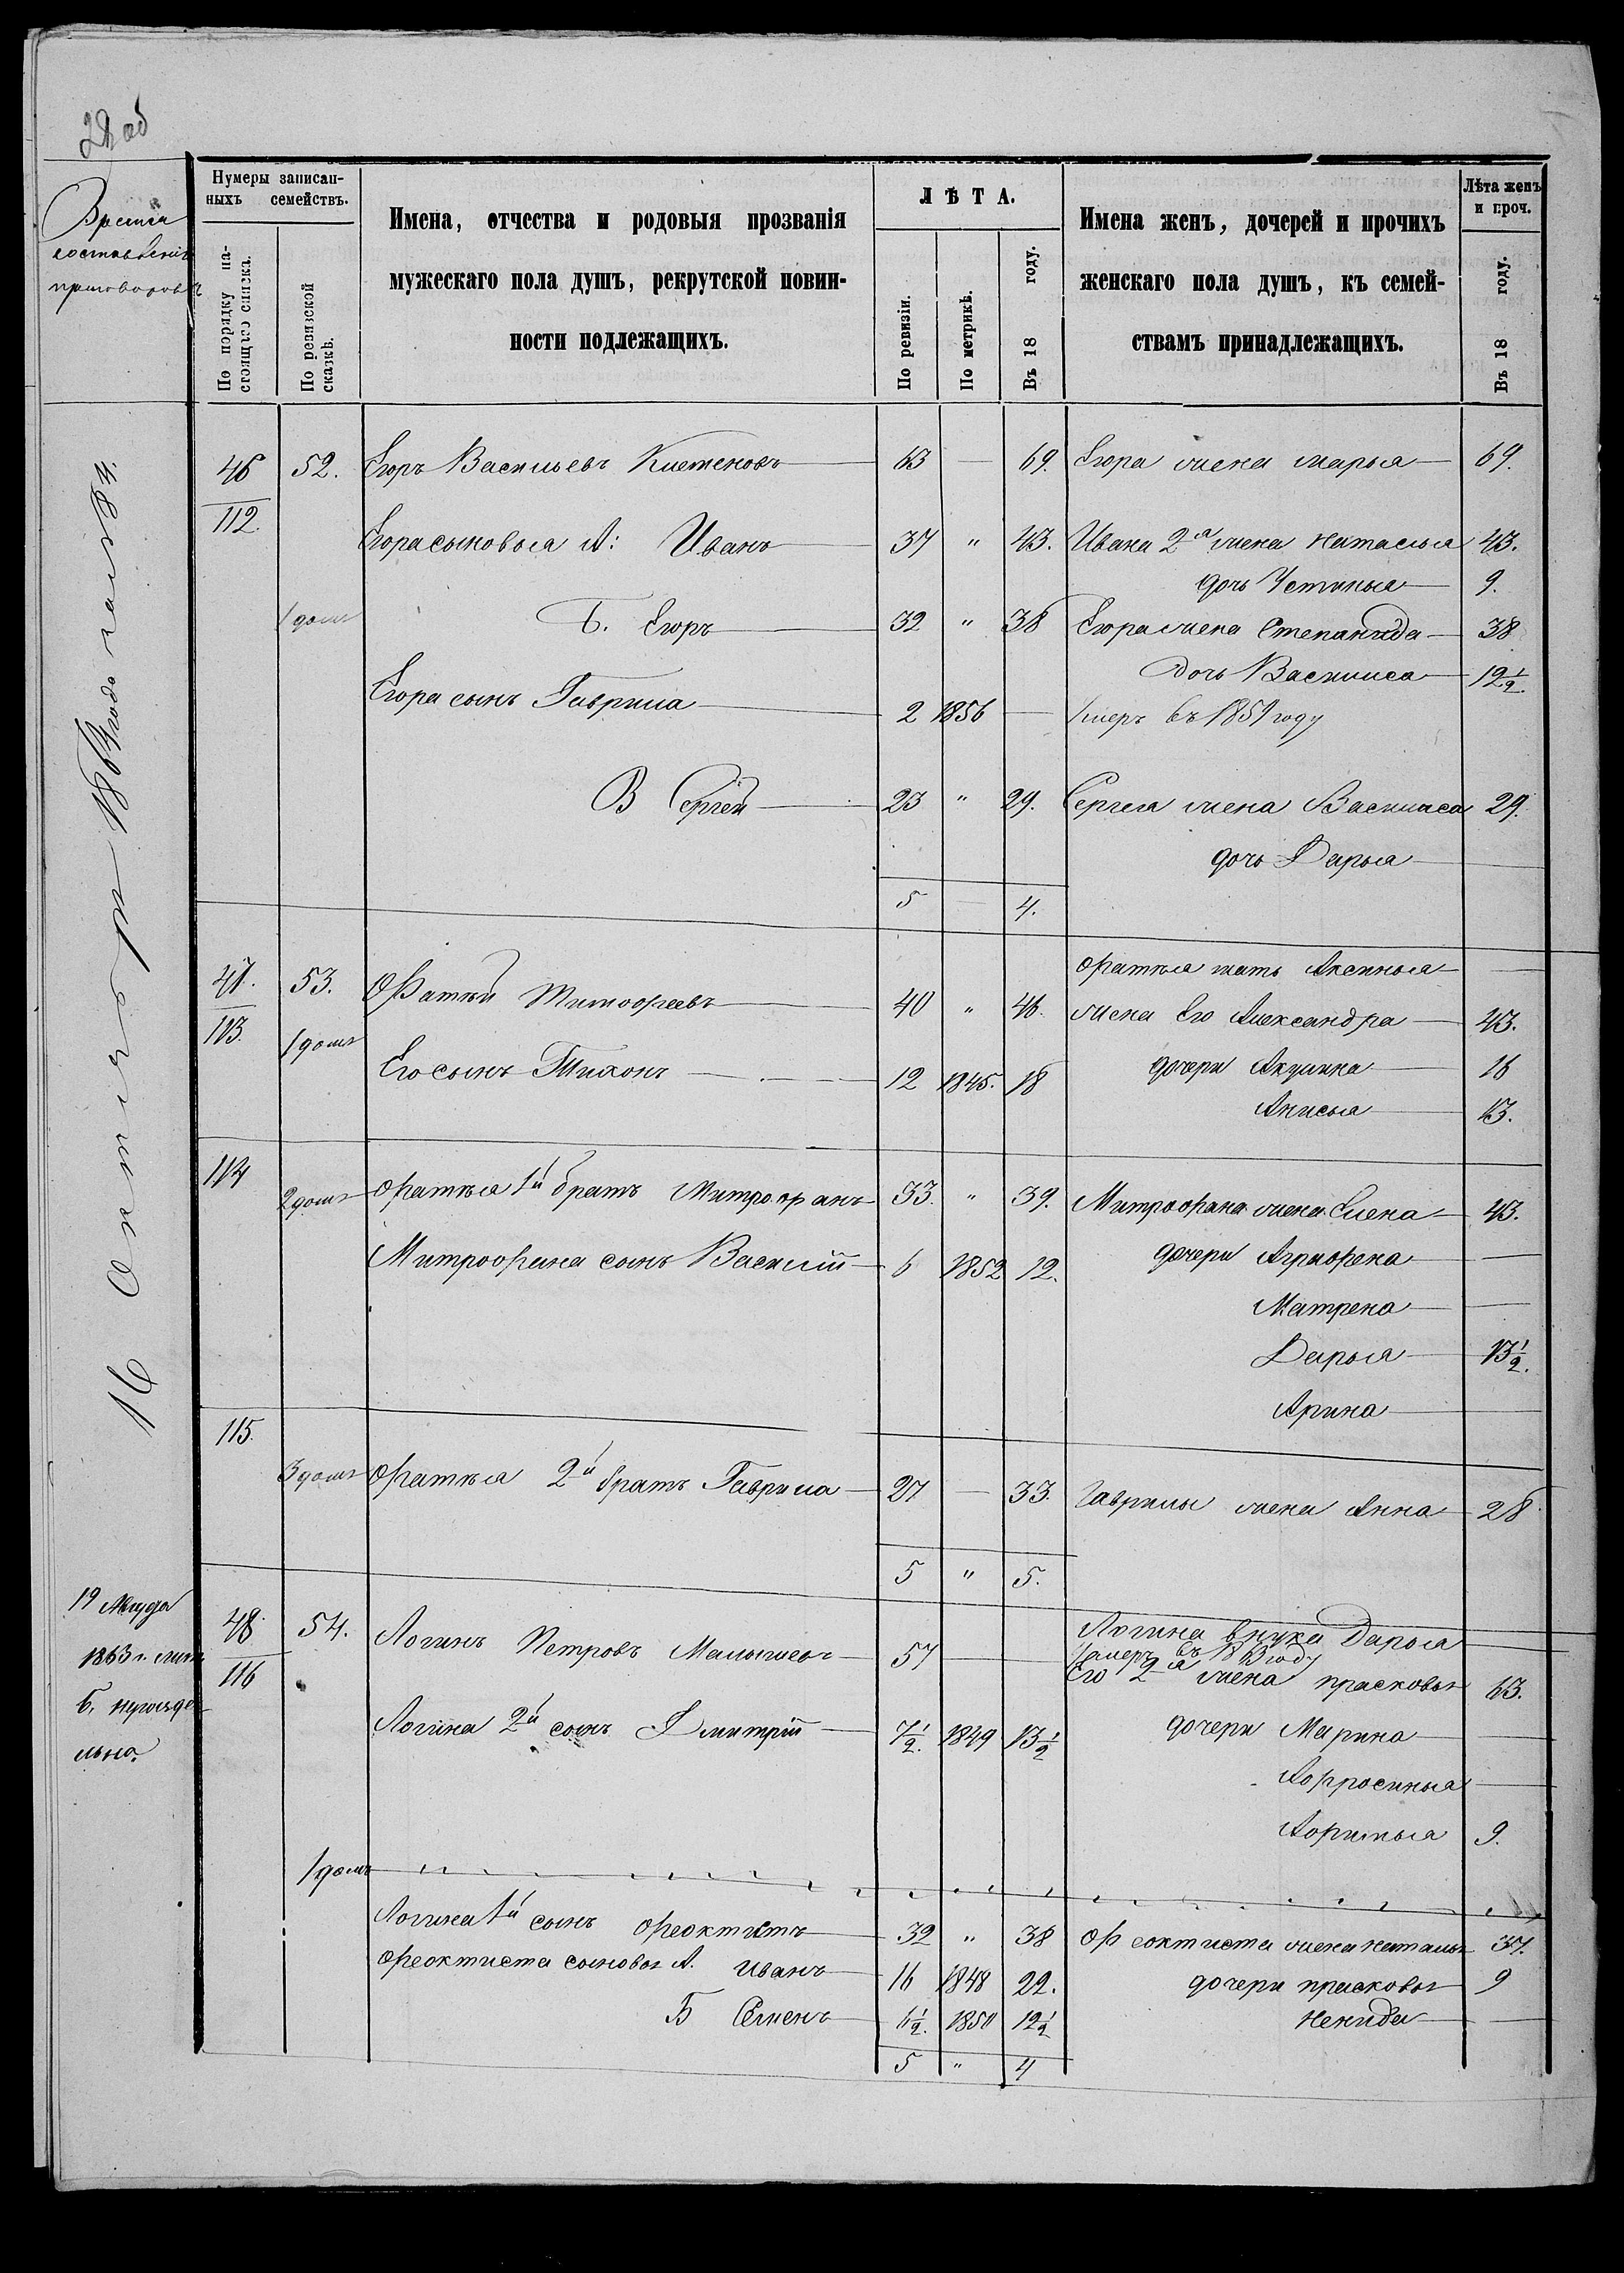 28 об
Время
составленія
приговоровъ
Нумеры записан-
ныхъ семействъ.
По порядку на-
стоящаго списка.
По ревизской
сказкѣ.
Имена, отчества и родовыя прозванія
мужескаго пола душъ, рекрутской повин-
ности подлежащихъ.
ЛѢТА.
По ревизіи.
По метрикѣ.
Въ 18 году.
Имена женъ, дочерей и прочихъ
женскаго пола душъ, къ семей-
ствамъ принадлежащихъ.
Лѣта женъ
и проч.
Въ 18 году.
16 Октября 1864 года
46 52. Егоръ Васильевъ 63 — 69. Егора жена Марья — 69.
112.
Егора сыновья А: Иванъ 37 " 43. Ивана 2я жена Наталья 43.
дочь Устинья 9.
1 домъ Б. Егоръ 32 " 38 Егора жена Степанида 38
дочь Василиса 12½.
Егора сынъ Гаврила 2 1856 — умеръ въ 1859 году
В Сергей 23 " 29. Сергея жена Василиса 29.
дочь Дарья —
5 — 4.
Фатѣя мать Аксинья —
47. 53. Фатѣй Тимофеевъ 40 " 46. жена Его Александра 43.
113. 1 домъ
Его сынъ Тихонъ 12 1845. 18 дочери Акулина 16
Анисья 13.
114 2 домъ Фатѣя 1й братъ Митрофанъ 33. " 39. Митрофана жена Елена 43.
Митрофана сынъ Василій 6 1852 12. дочери Аграфена —
Матрена —
Дарья 13½.
Арина —
115.
3 домъ Фатѣя 2й братъ Гаврила 27 — 33. Гаврилы жена Анна 28
5 " 5.
19 Августа
1863 г. лит.
Б.
Логина внука Дарья —
48. 54. Логинъ Петровъ Малышевъ 57 — умеръ въ году
116 Его 2я жена Прасковья 63.
Логина 2й сынъ Дмитрій 7½. 1849 13½ дочери Марина —
Афросинья —
Афимья 9.
1 домъ
Логина 1й сынъ Феоктистъ 32 " 38 Феоктиста жена Наталья 37.
Феоктиста сыновья А. Иванъ 16 1848 22. дочери Прасковья 9
Б Семенъ 6½. 1850 12½ Ненида —
5 " 4